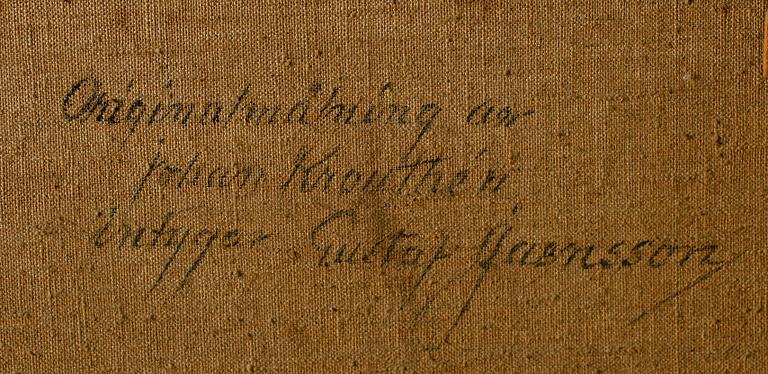 Originalmålning av
Johan Krouthén
intygar Gustaf